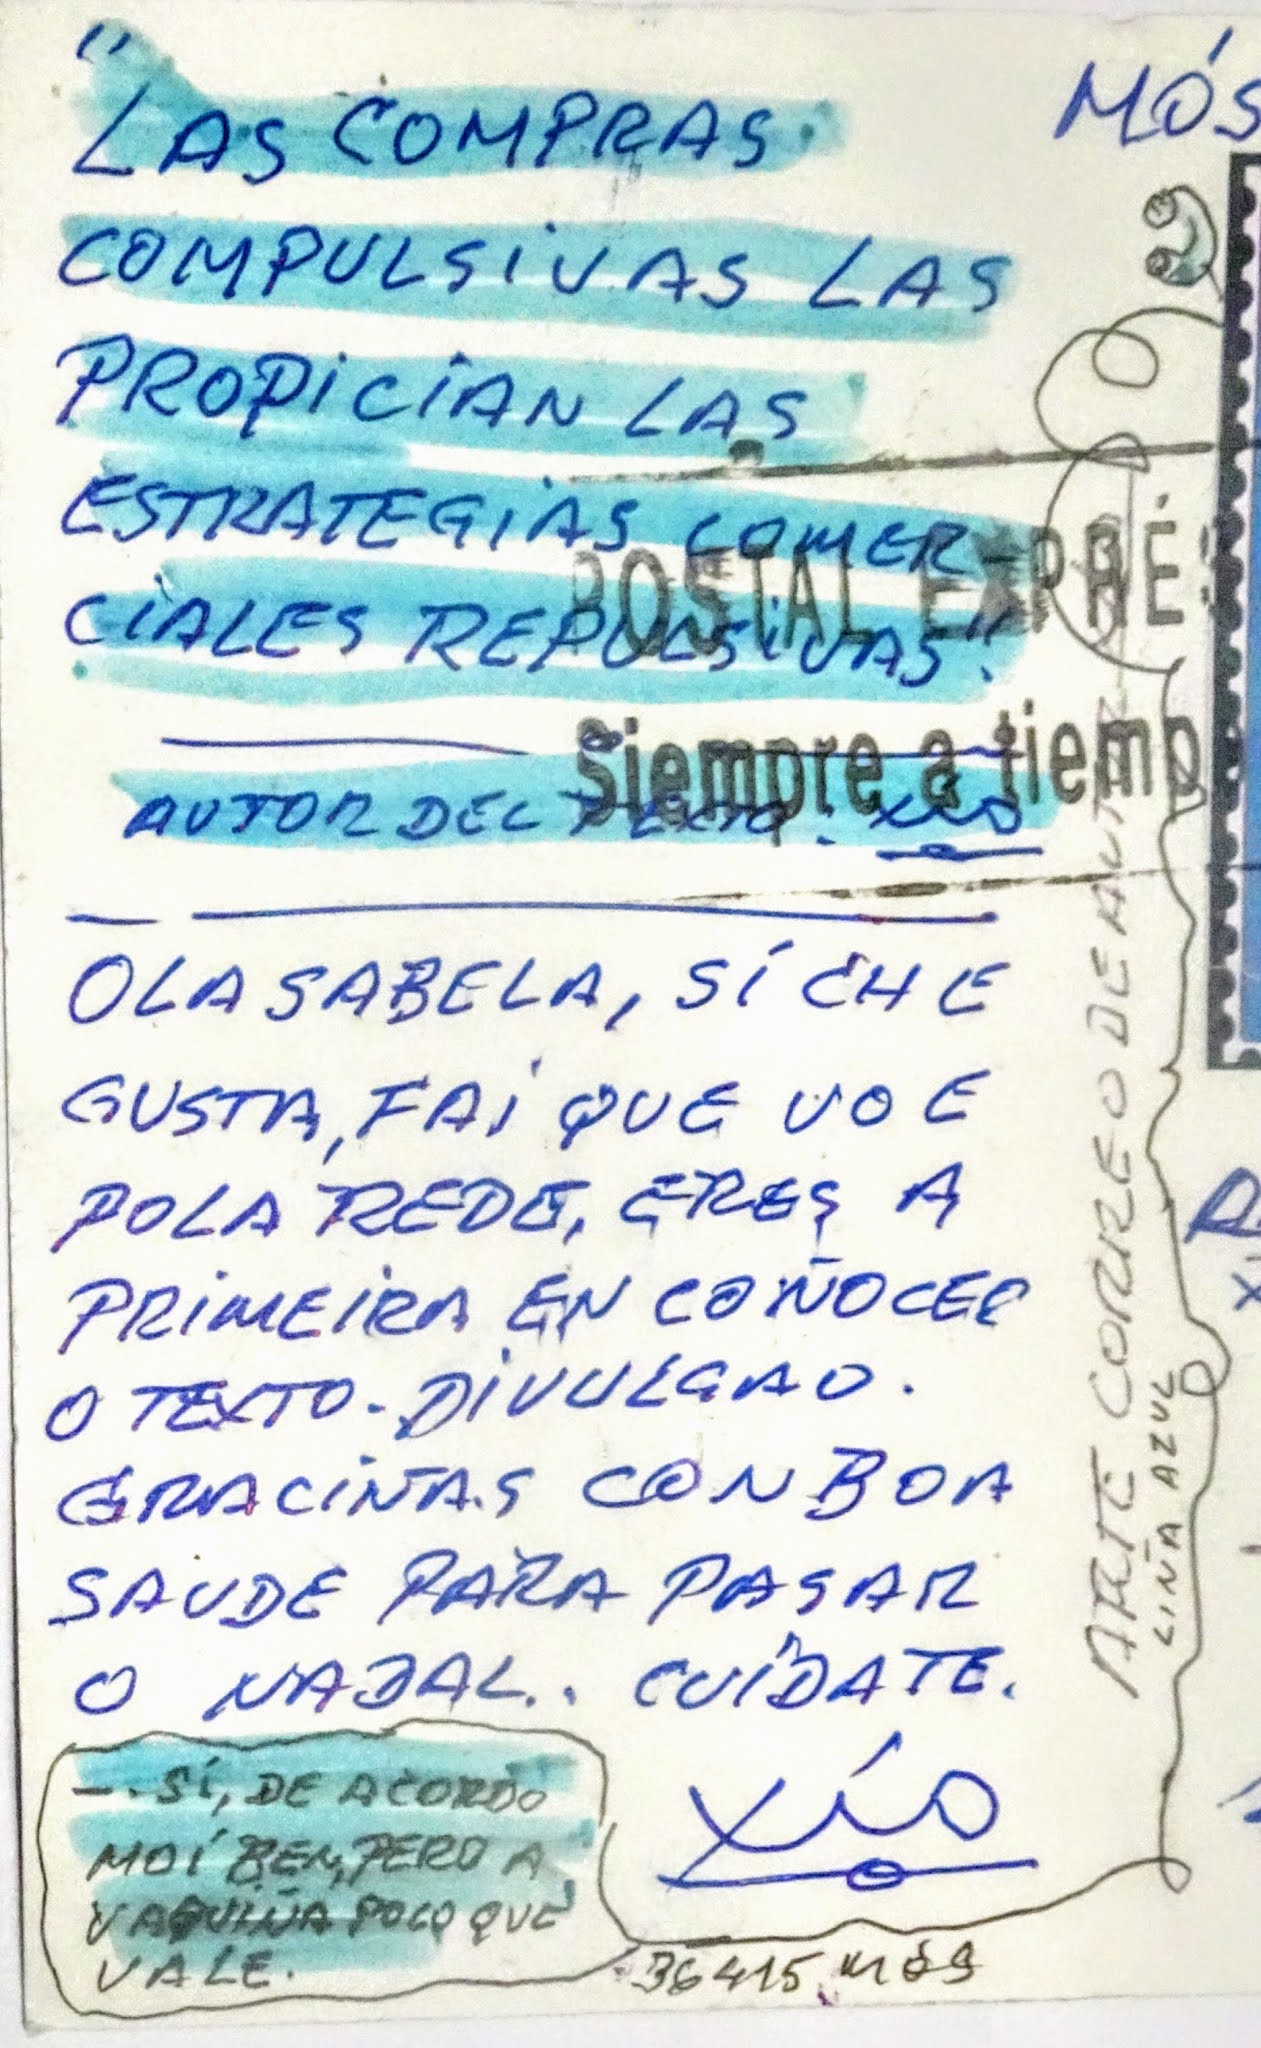 "LAS COMPRAS
COMPULSIVAS LAS
PROPICIAN LAS
ESTRATEGIAS COMER-
CIALES REPULSIVAS".
AUTOR DEL TEXTO: XÍO
OLA SABELA, SÍ CHE
GUSTA, FAI QUE VOE
POLA REDE, ERES A
PRIMEIRA EN COÑOCER
O TEXTO. DIVULGAO.
GRACIÑAS CON BOA
SAUDE PARA PASAR
O NADAL.. CUÍDATE.
XÍO
—. SÍ, DE ACORDO
MOÍ BEN, PERO A
VAQUIÑA POLO QUE
VALE.
36415 MÓS
MÓS
POSTAL EXPRÉS
Siempre a tiemp
ARTE CORREO DE AUTOR
LIÑA AZUL